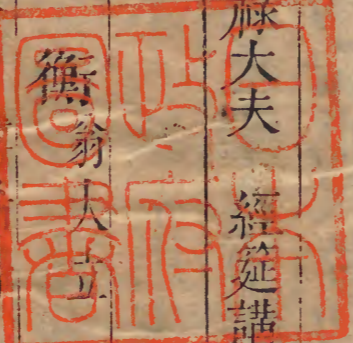 祿大夫　經筵講
衡翁大立
日本
政府
圖書